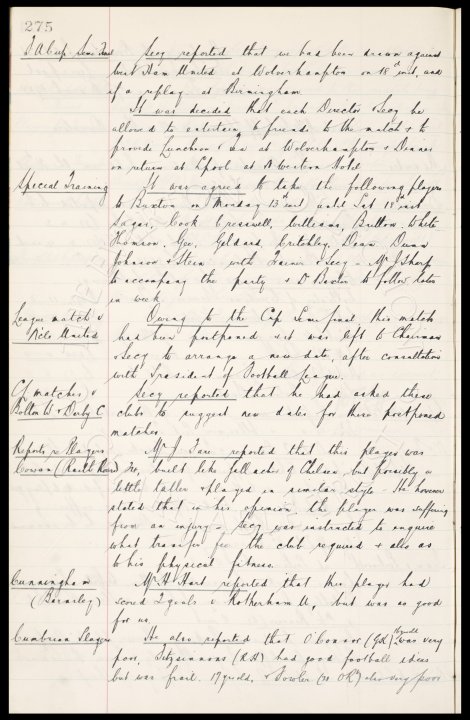 275
F A Cup Semi Final
Secy reported that we had been drawn against
West Ham United at Wolverhampton on 18th inst, and
if a replay at Birmingham.
It was decided that each Director & Secy be
allowed to entertain 6 friends to the match & to
provide Luncheon & Tea at Wolverhampton & Dinner
on return at L'pool at N Western Hotel
Special Training
It was agreed to take the following players
to Buxton on Monday 13th inst until Sat 18th inst
Sagar, Cook Cresswell, Williams, Britton White
Thomson, Gee, Geldard, Critchley, Dean Dunn
Johnson & Stein with Trainer & Secy - Mr J Sharp
to accompany the party & D Baxter to follow later
in week.
League match v
Nets United
Owing to the Cup Semi final this match
had been postponed & it was left to Chairman
& Secy to arrange a new date, after consultation
with President of Football League.
CL matches v
Bolton W & Derby C
Secy reported that he had asked these
clubs to suggest new dates for these postponed
matches.
Reports re Players
Cowan (Raith Rovers)
Mr J Fare reported that this player was
built like Gallacher of Chelsea but possibly a
little taller & played in similar style. He however
stated that in his opinion the player was suffering
from an injury - Secy was instructed to enquire
what transfer fee the club required & also as
to his physical fitness.
Cunningham
(Barnsley)
Mr H Hart reported that this player had
scored 2 goals v Rotherham U, but was no good
for us.
Cumbrian Players
He also reported that O'Connor (GK) was very
poor, Fitzsimmons (RH) had good football ideas
but was frail. & Fowler also very poor